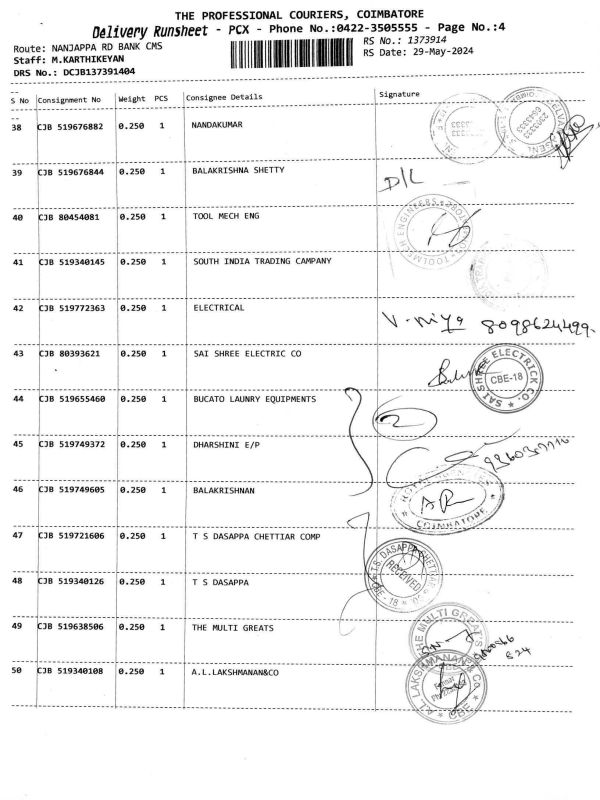 THE PROFESSIONAL COURIERS, COIMBATORE
Delivery Runsheet - PCX - Phone No.:0422-3505555 - Page No.:4
Route: NANJAPPA RD BANK CMS
RS No.: 1373914
Staff: M.KARTHIKEYAN
RS Date: 29-May-2024
DRS No.: DCJB137391404
S No Consignment No Weight PCS Consignee Details Signature
38 CJB 519676882 0.250 1 NANDAKUMAR
39 CJB 519676844 0.250 1 BALAKRISHNA SHETTY D/L
40 CJB 80454081 0.250 1 TOOL MECH ENG
41 CJB 519340145 0.250 1 SOUTH INDIA TRADING CAMPANY
42 CJB 519772363 0.250 1 ELECTRICAL 8098624499
43 CJB 80393621 0.250 1 SAI SHREE ELECTRIC CO
SAI SHREE ELECTRICK CO. CBE-18
44 CJB 519655460 0.250 1 BUCATO LAUNRY EQUIPMENTS
45 CJB 519749372 0.250 1 DHARSHINI E/P
46 CJB 519749605 0.250 1 BALAKRISHNAN
COIMBATORE
47 CJB 519721606 0.250 1 T S DASAPPA CHETTIAR COMP
T.S. DASAPPA CHETTIAR RECEIVED CBE-18
48 CJB 519340126 0.250 1 T S DASAPPA
49 CJB 519638506 0.250 1 THE MULTI GREATS
THE MULTI GREAT'S
50 CJB 519340108 0.250 1 A.L.LAKSHMANAN&CO
A.L. LAKSHMANAN & Co. CBE